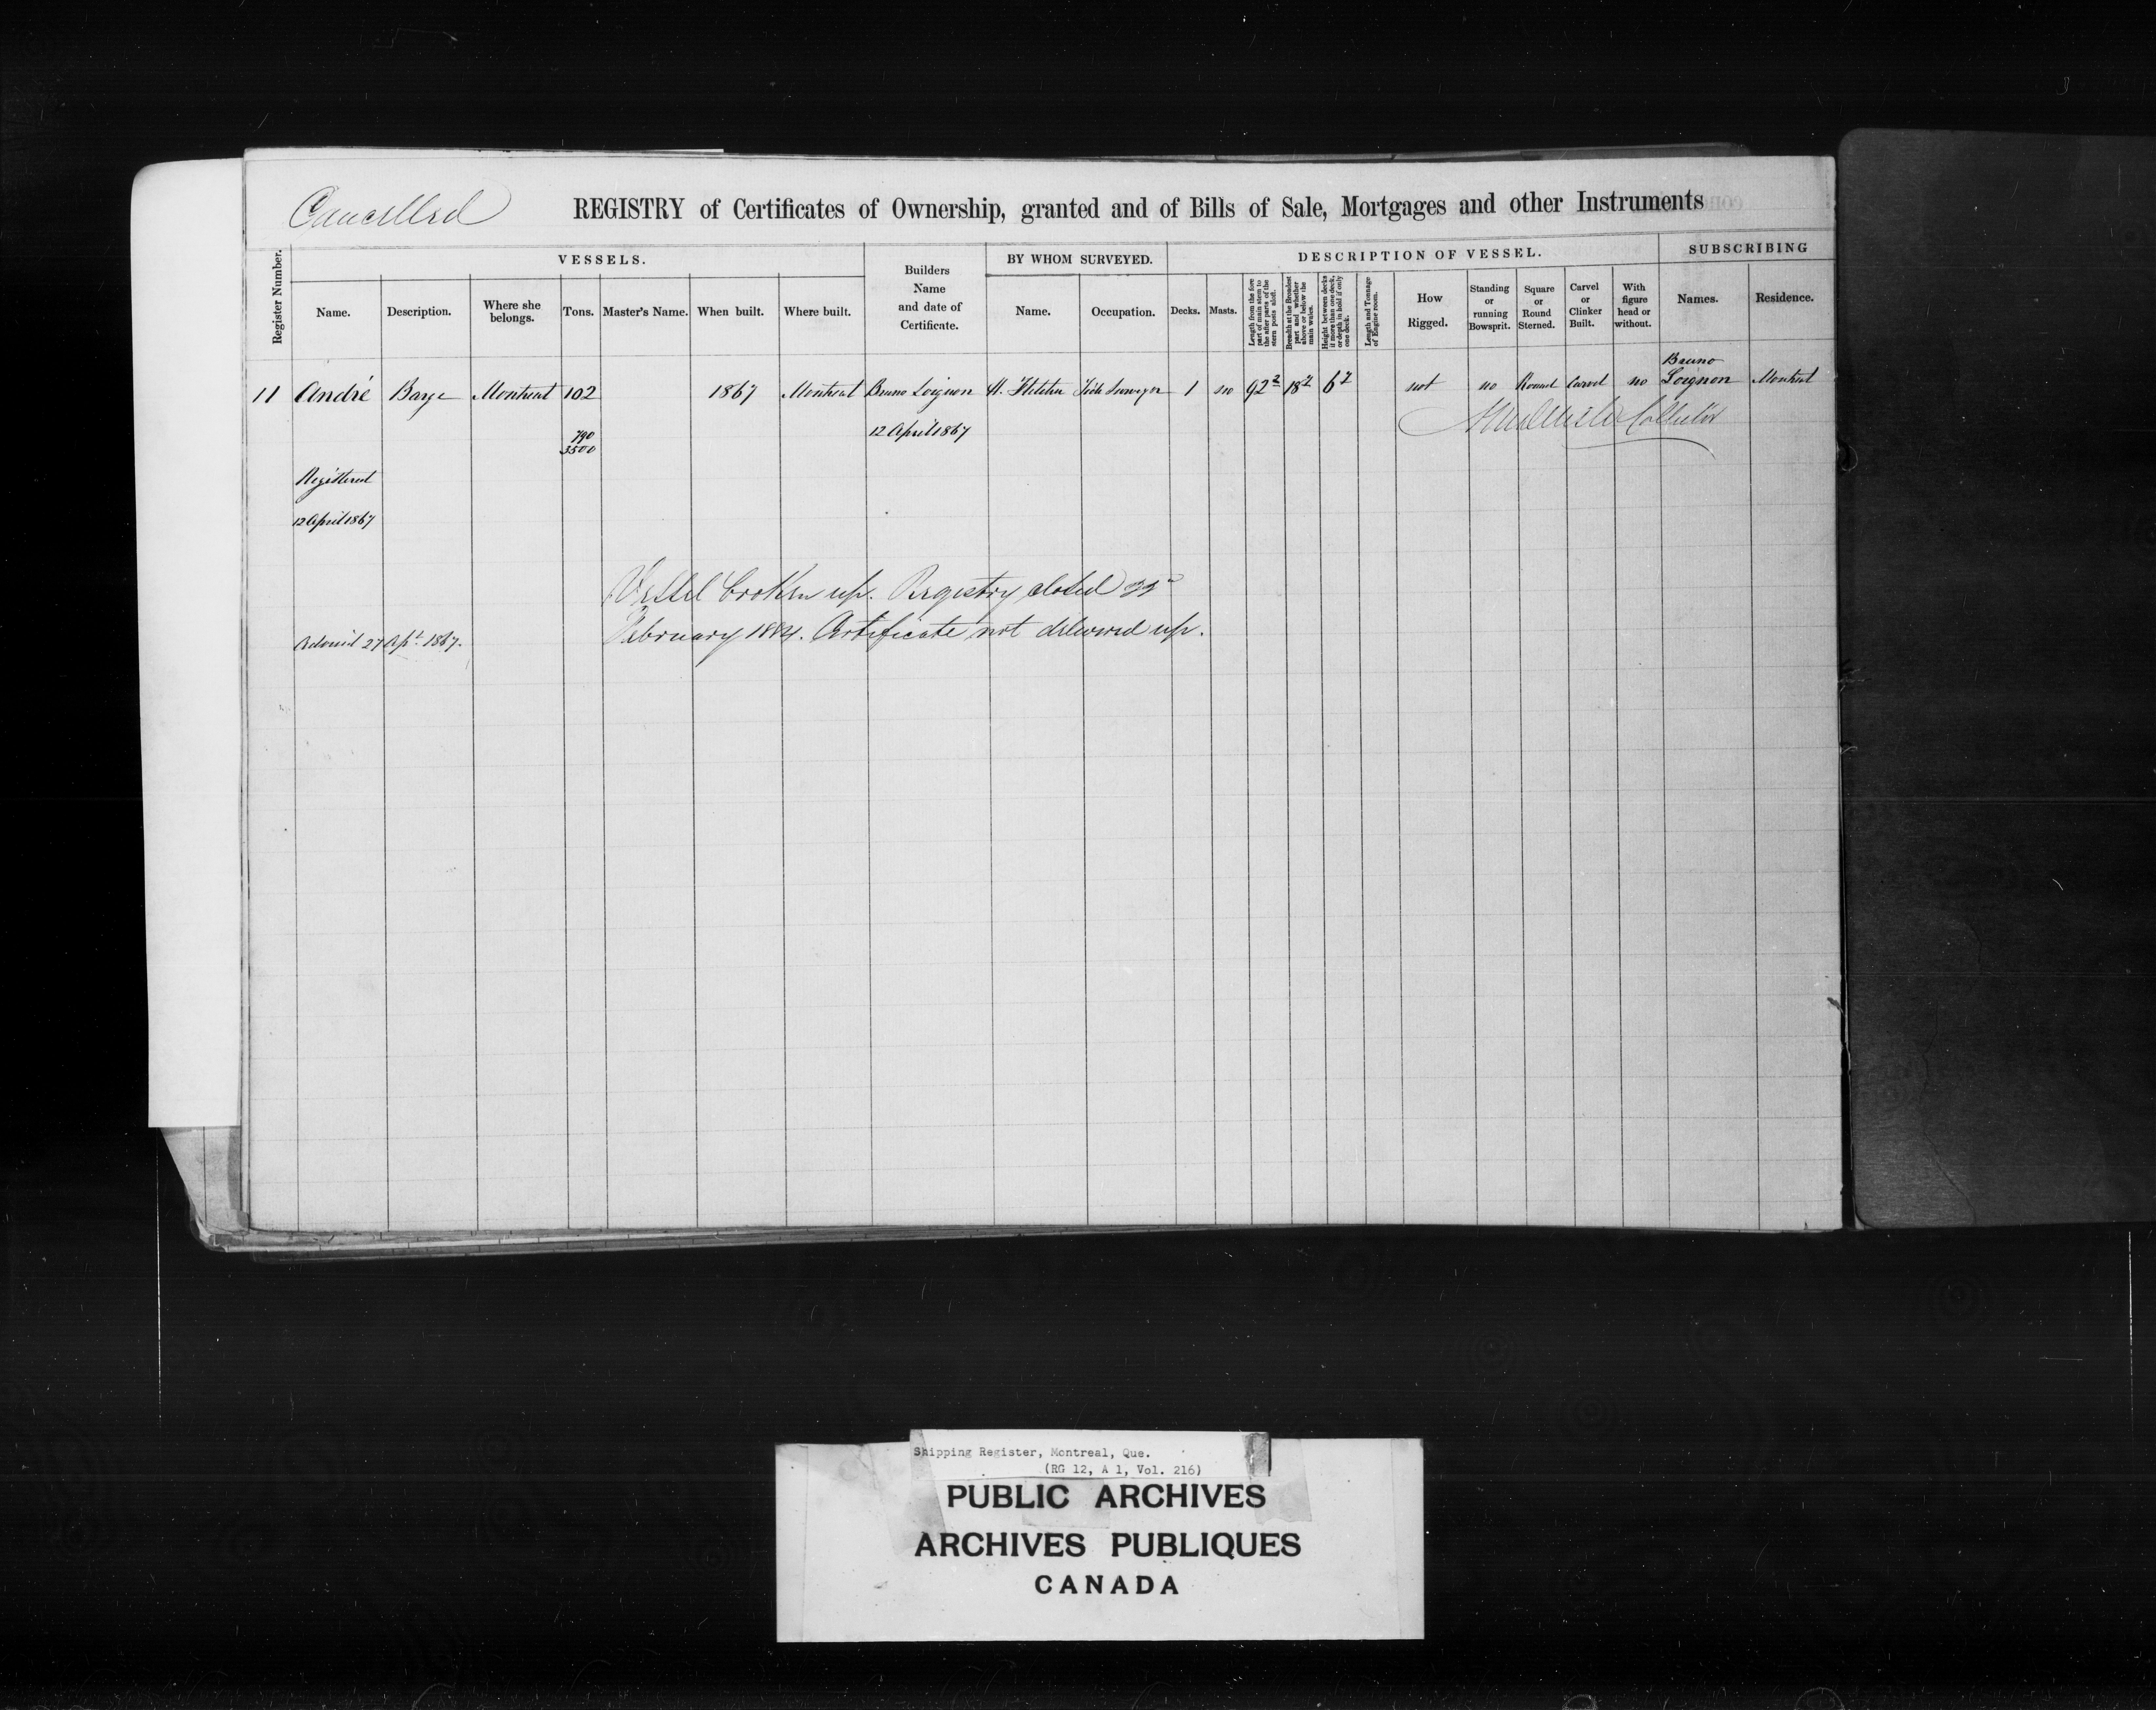 Cancelled
REGISTRY of Certificates of Ownership, granted and of Bills of Sale, Mortgages and other Instruments
Register Number.
VESSELS.
Name.
Description.
Where she belongs.
Tons.
Master's Name.
When built.
Where built.
Builders Name and date of Certificate.
BY WHOM SURVEYED.
Name.
Occupation.
DESCRIPTION OF VESSEL.
Decks.
Masts.
Length from the fore part of main stem to the after parts of the stern posts aloft.
Breadth at the Broadest part and whether above or below the main wales.
Height between decks if more than one deck, or depth in hold if only one deck.
Length and Tonnage of Engine room.
How Rigged.
Standing or running Bowsprit.
Square or Round Sterned.
Carvel or Clinker Built.
With figure head or without.
SUBSCRIBING
Names.
Residence.
11 André Barge Montreal 102 1867 Montreal Bruno Loignon H. Fletcher Tide Surveyor 1 no 92 2 18 7 6 7 not no Round Carvel no Bruno Loignon Montreal
790
3500
12 April 1867
Collector
Registered
12 April 1867
Vessel broken up. Registry closed
February 1884. Certificate not delivered up.
27 Apl. 1867.
Shipping Register, Montreal, Que.
(RG 12, A 1, Vol. 216)
PUBLIC ARCHIVES
ARCHIVES PUBLIQUES
CANADA